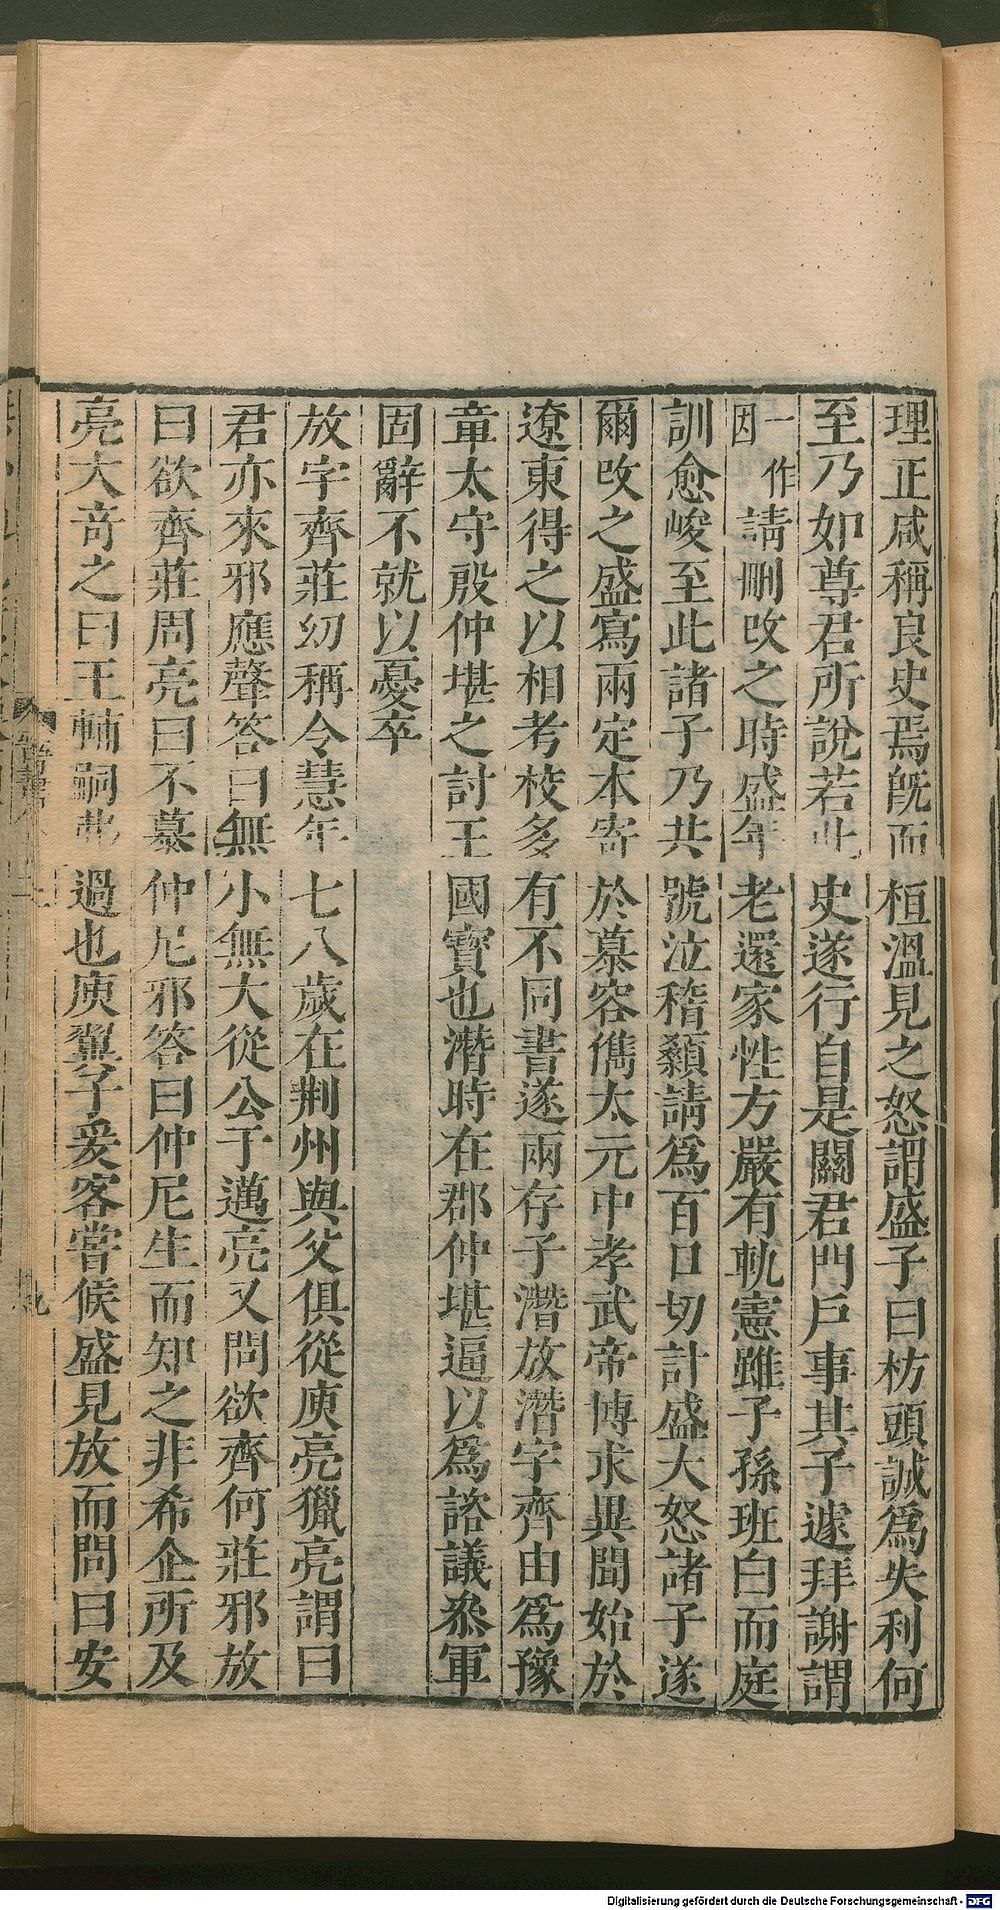 理正咸稱良史焉旣而桓溫見之怒謂盛子曰枋頭誠爲失利何
至乃如尊君所說若此史遂行自是關君門戶事其子遽拜謝謂
一作因請刪改之時盛年老還家性方嚴有軌憲雖子孫班白而庭
訓愈峻至此諸子乃共號泣稽顙請爲百口切計盛大怒諸子遂
爾改之盛寫兩定本寄於慕容儁太元中孝武帝博求異聞始於
遼東得之以相考校多有不同書遂兩存子潛放潛字齊由爲豫
章太守殷仲堪之討王國寶也潛時在郡仲堪逼以爲諮議叅軍
固辭不就以憂卒
放字齊莊幼稱令慧年七八歲在荆州與父俱從庾亮獵亮謂曰
君亦來邪應聲答曰無小無大從公于邁亮又問欲齊何莊邪放
曰欲齊莊周亮曰不慕仲尼邪答曰仲尼生而知之非希企所及
亮大奇之曰王輔嗣弗過也庾翼子爰客嘗候盛見放而問曰安
Digitalisierung gefördert durch die Deutsche Forschungsgemeinschaft - DFG